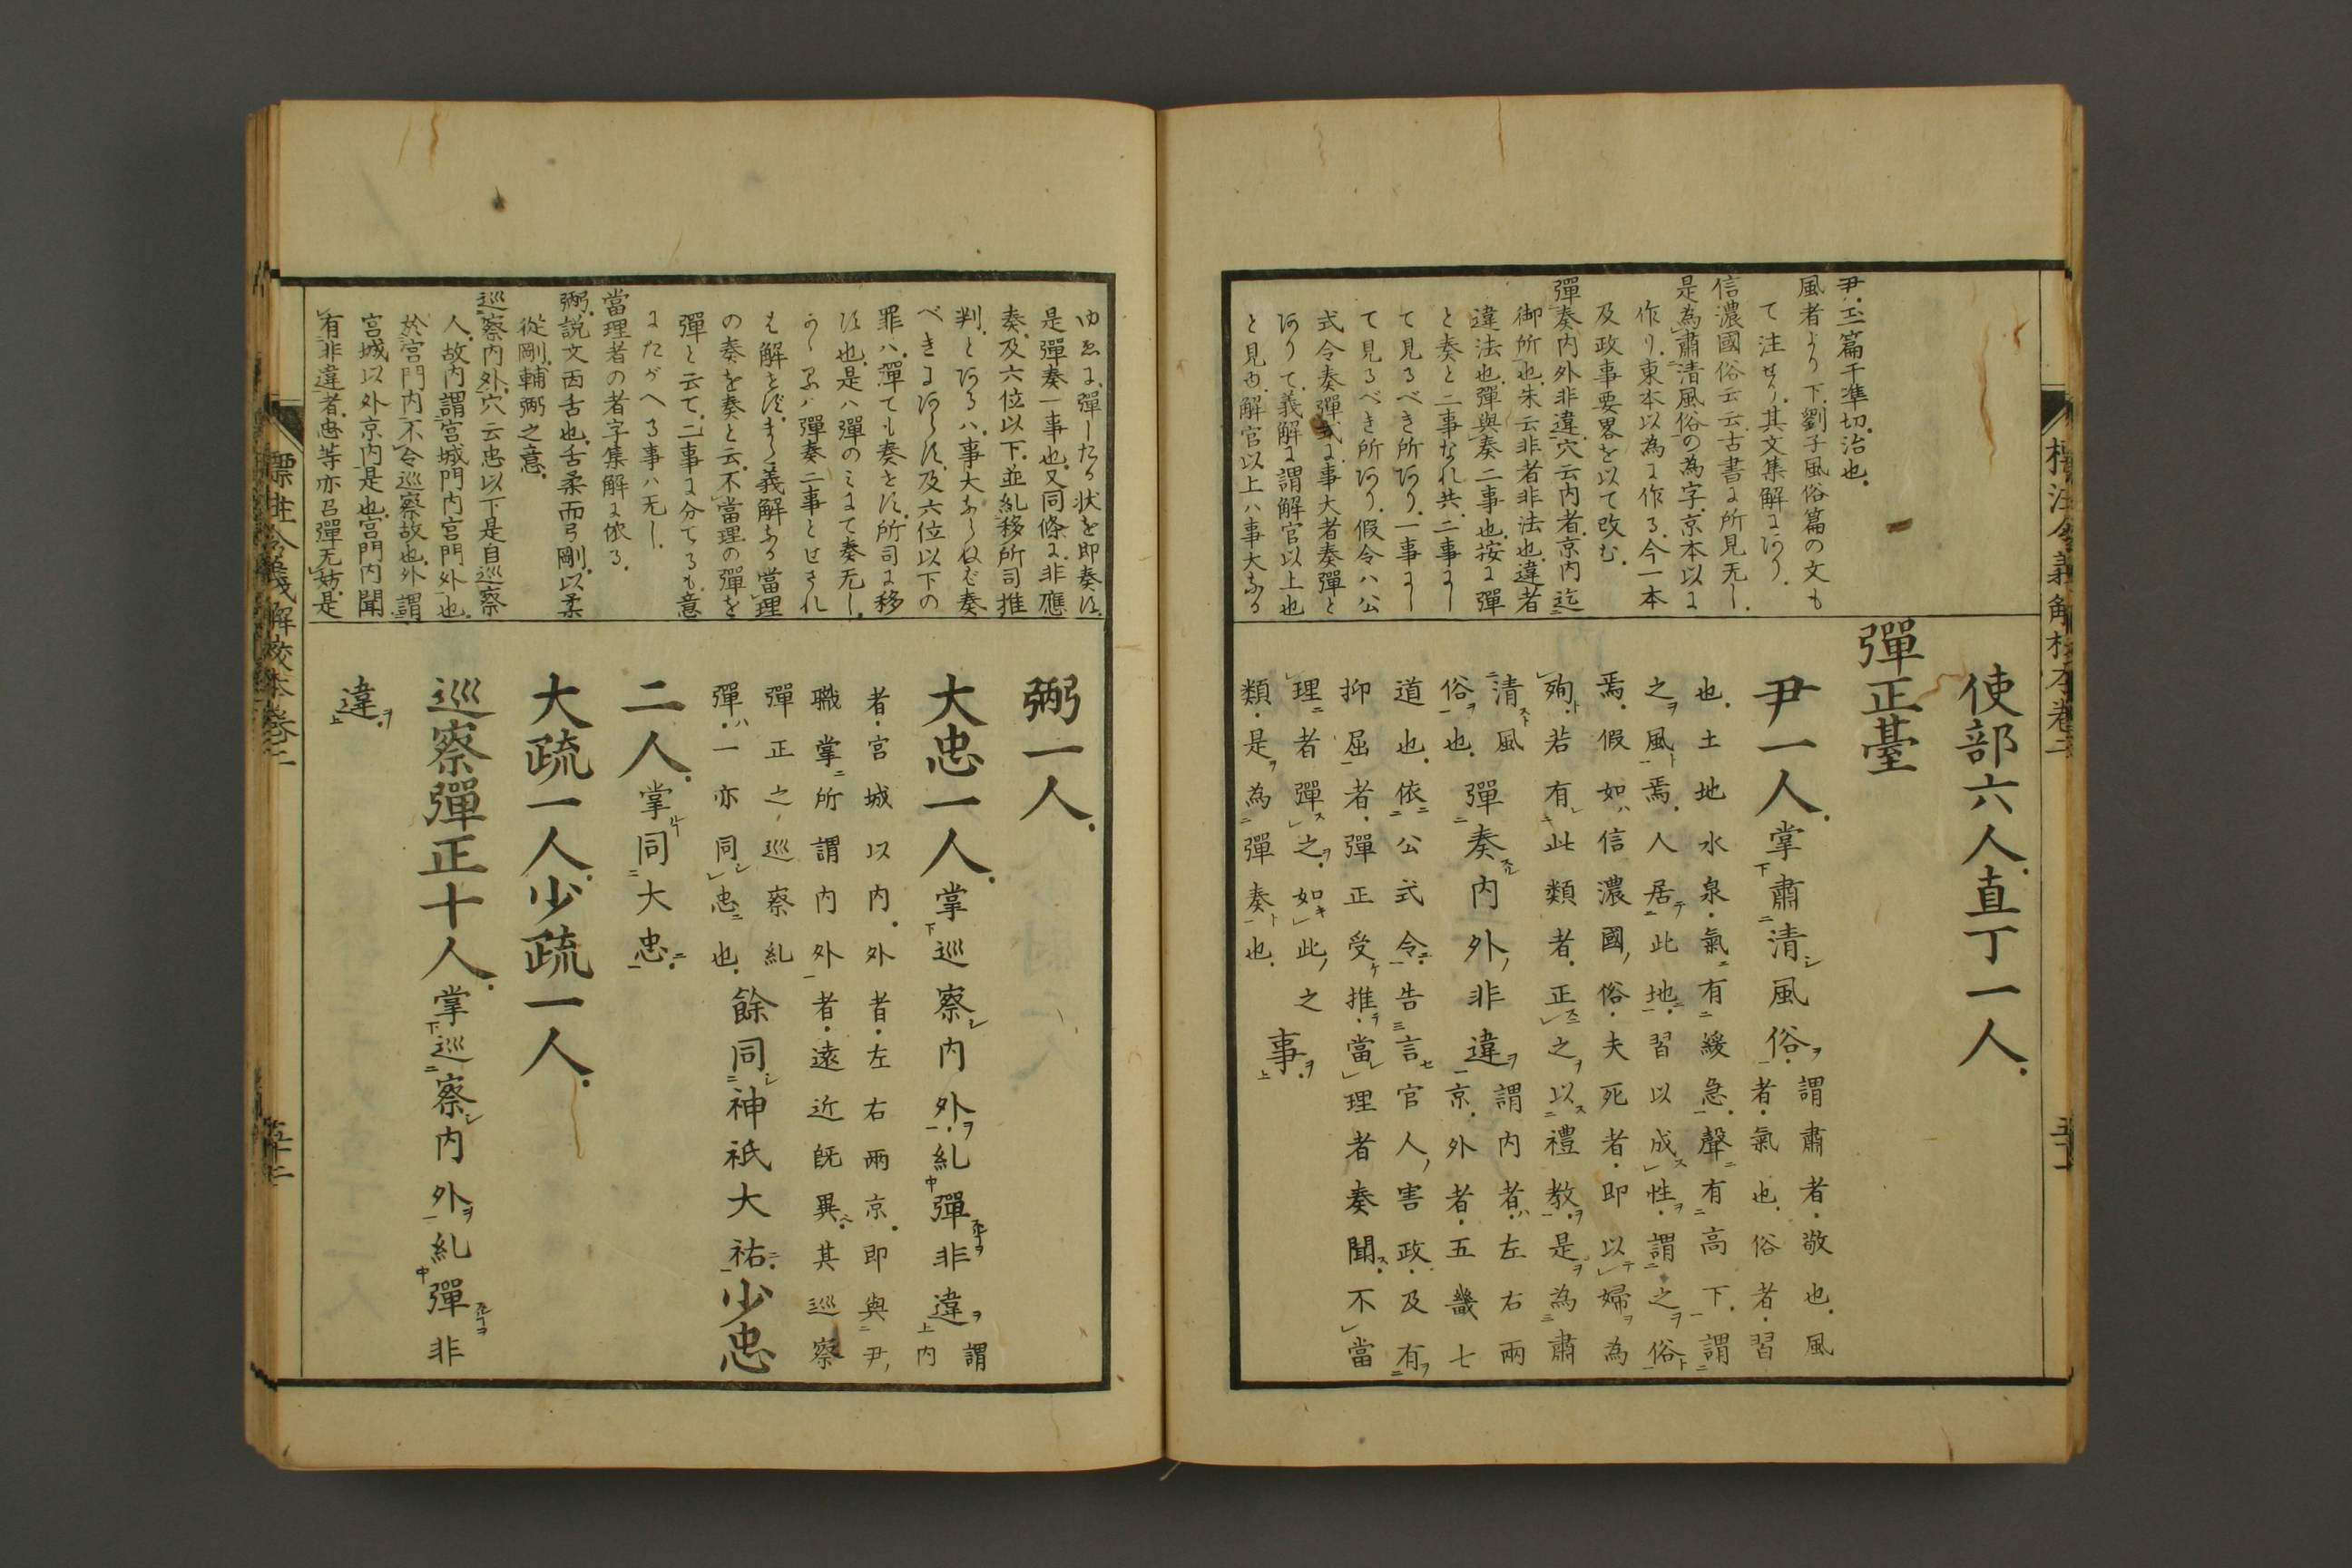 標注令義解校本卷二
五十一
尹玉篇于準切治也
風者より下劉子風俗篇の文も
て注せり其文集解にあり
信濃國俗云云古書に所見无し
是為肅清風俗の為字京本以に
作り東本以為に作る今一本
及政事要畧を以て改む
彈奏内外非違穴云内者京内迄
御所也朱云非者非法也違者
違法也彈與奏二事也按に彈
と奏と二事なれ共二事にし
て見るべき所あり一事にし
て見るべき所あり假令ハ公
式令奏彈式に事大者奏彈と
ありて義解に謂解官以上也
と見ゆ解官以上ハ事大なる
使部六人直丁一人
彈正臺
尹一人掌肅清風俗謂肅者敬也風
者氣也俗者習
也土地水泉氣有緩急聲有高下謂
之風焉人居此地習以成性謂之俗
焉假如信濃國俗夫死者即以婦為
殉若有此類者正之以禮教是為肅
清風俗也
彈奏内外非違謂内者左右兩
京外者五畿七
道也依公式令告言官人害政及有
抑屈者彈正受推當理者奏聞不當
理者彈之如此之
類是為彈奏也
事
ゆゑに彈したる状を即奏す
是彈奏一事也又同條に非應
奏及六位以下並糺移所司推
判とあるハ事大ならねば奏
べきにあらず及六位以下の
罪ハ彈ても奏せず所司に移
す也是ハ彈のミにて奏无し
かゝれハ彈奏二事とせされ
は解せずまた義解なる當理
の奏を奏と云不當理の彈を
彈と云て二事に分てるも意
にたがへる事ハ无し
當理者の者字集解に依る
弼説文㐁舌也舌柔而弓剛以柔
從剛輔弼之意
巡察内外穴云忠以下是自巡察
人故内謂宮城門内宮門外也
於宮門内不令巡察故也外謂
宮城以外京内是也宮門内聞
有非違者忠等亦召彈无妨是
弼一人
大忠一人掌巡察内外糺彈非違謂
内
者宮城以内外者左右兩京即與尹
職掌所謂内外者遠近既異其巡察
彈正之巡察糺
彈一亦同忠也
餘同神祇大祐少忠
二人掌同大忠
大疏一人少疏一人
巡察彈正十人掌巡察内外糺彈非
違
標注令義解校本卷二
五十二